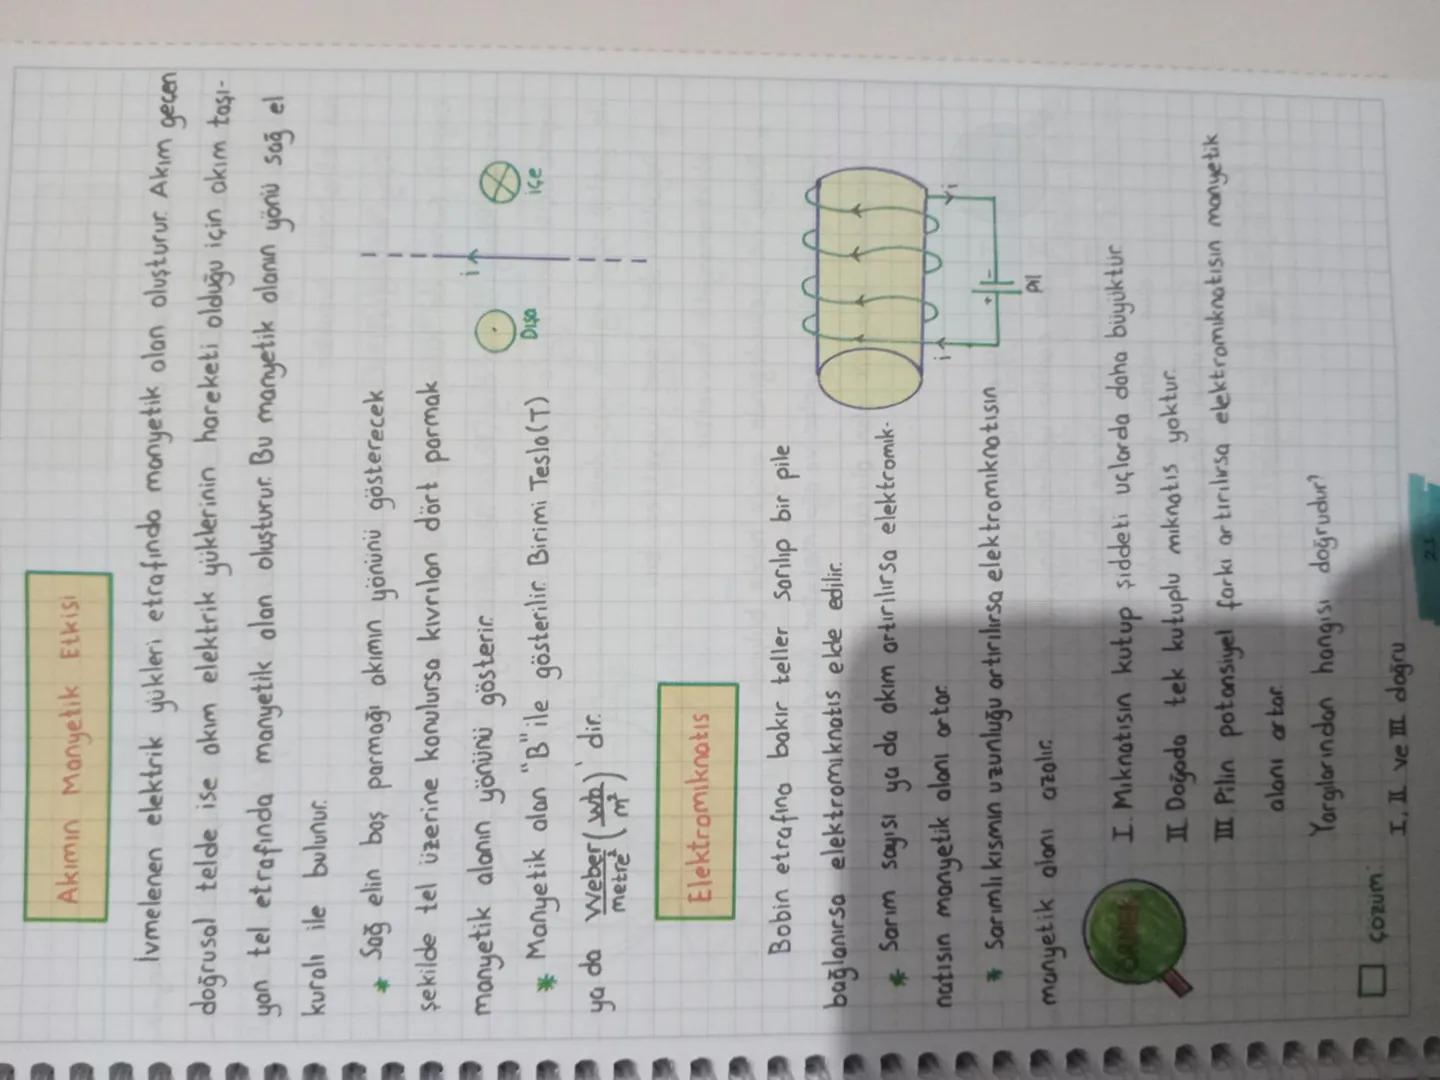 Akımın Manyetik Etkisi
İvmelenen elektrik yükleri etrafında manyetik alan oluşturur. Akım geçen
doğrusal telde ise akım elektrik yüklerinin hareketi olduğu için akım taşı-
yan tel etrafında manyetik alan oluşturur. Bu manyetik alanın yönü sağ el
kuralı ile bulunur.
* Sağ elin baş parmağı akımın yönünü gösterecek
şekilde tel üzerine konulursa kıvrılan dört parmak
manyetik alanın yönünü gösterir.
i
Dışa
içe
* Manyetik alan "B" ile gösterilir. Birimi Tesla (T)
ya da Weber/metre² (wb/m²) 'dir.
Elektromıknatıs
Bobin etrafına bakır teller sarılıp bir pile
bağlanırsa elektromıknatıs elde edilir.
* Sarım sayısı ya da akım artırılırsa elektromık-
natısın manyetik alanı artar.
* Sarımlı kısmın uzunluğu artırılırsa elektromıknatısın
manyetik alanı azalır.
i
i
+ -
pil
ÖRNEK
I. Mıknatısın kutup şiddeti uçlarda daha büyüktür.
II. Doğada tek kutuplu mıknatıs yoktur.
III. Pilin potansiyel farkı artırılırsa elektromıknatısın manyetik
alanı artar.
Yargılarından hangisi doğrudur?
çözüm:
I, II ve III doğru